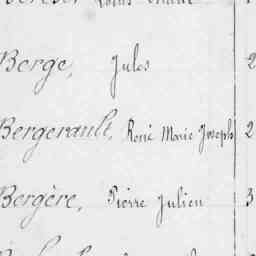 Berge, Jules 2
Bergerault, René Marie Joseph 2
Bergère, Pierre Julien 3